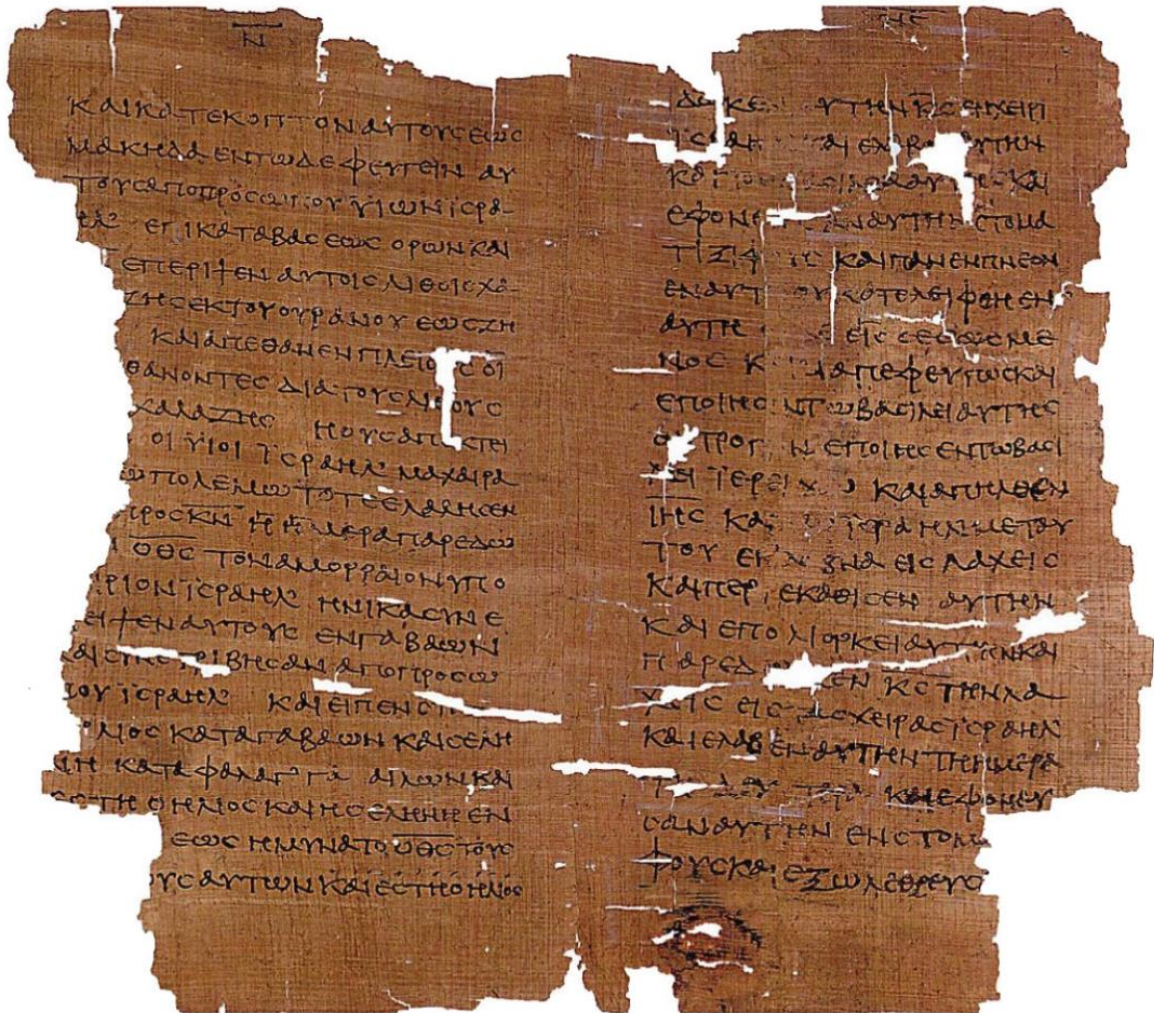 Ν
ΚΑΙΚΑΤΕΚΟΠΤΟΝΑΥΤΟΥCΕΩC
ΜΑΚΗΔΑΕΝΤΩΔΕΦΕΥΓΕΙΝΑΥ
ΤΟΥCΑΠΟΠΡΟCΩΠΟΥΥΙΩΝΙCΡΑ
ΕΠΙΚΑΤΑΒΑCΕΩCΟΡΩΝΚΑΙ
ΕΠΕΡΙΨΕΝΑΥΤΟΙCΛΙΘΟΙCΧΑ
ΖΗCΕΚΤΟΥΟΥΡΑΝΟΥΕΩCΖΗ
ΚΑΙΑΠΕΘΑΝΕΝΠΛΕΙΟ C ΟΙ
ΘΑΝΟΝΤΕCΔΙΑΤΟΥCΛΙΘΟΥC
ΧΑΛΑΖΗC ΗΟΥCΑΠΕΚΤΕΙ
ΟΙΥΙΟΙΙCΡΑΗΛΜΑΧΑΙΡΑ
ΩΠΟΛΕΜΩΤΟΤΕΕΛΑΛΗCΕΝ
ΠΡΟCΚΝ ΗΗΜΕΡΑΠΑΡΕΔΩ
ΟΘC ΤΟΝΑΜΟΡΡΑΙΟΝΥΠΟ
ΙΡΙΟΝΙCΡΑΗΛ ΗΝΙΚΑCΥΝΕ
ΕΙΨΕΝΑΥΤΟΥC ΕΝΓΑΒΑΩΝ
ΑΙCΥΝΕΤΡΙΒΗCΑΝΑΠΟΠΡΟCΩ
ΠΟΥΙCΡΑΗΛ ΚΑΙΕΙΠΕΝ
ΛΙΟC ΚΑΤΑΓΑΒΑΩΝ ΚΑΙCΕΛΗ
ΝΗ ΚΑΤΑΦΑΡΑΓΓΑ ΑΙΛΩΝΚΑΙ
ΕCΤΗΟΗΛΙΟCΚΑΙΗCΕΛΗΝΗΕΝ
ΕΩCΗΜΥΝΑΤΟ ΟΘC ΤΟΥC
ΟΥCΑΥΤΩΝΚΑΙΕCΤΗΟΗΛΙΟC
ΔΩΚΕ ΥΤΗΝΚCΕΝΧΕΙΡΙ
ΙCΡΑΗ ΚΑΙΕΛΑΒΟ ΑΥΤΗΝ
ΚΑΙ
ΕΦΟΝΕ ΑΝΑΥΤΗΝCΤΟΜΑ
ΤΙΞΙΦ C ΚΑΙΠΑΝΕΝΠΝΕΟΝ
ΕΝΑΥΤ ΟΥΚΑΤΕΛΕΙΦΘΗΕΝ
ΑΥΤΗ ΕΙC CΕCΩCΜΕ
ΝΟC Κ ΑΠΕΦΕΥΓΩCΚΑΙ
ΕΠΟΙΗC ΝΤΩΒΑCΙΛΕΙΑΥΤΗC
Ο ΤΡΟΠ Ν ΕΠΟΙΗCΕΝΤΩΒΑCΙ
ΛΕΙ ΙΕΡΕΙΧ ΚΑΙΑΠΗΛΘΕΝ
ΙΗC ΚΑΙ ΙCΡΑΗΛΜΕΤΟΥ
ΤΟΥ ΕΚ ΒΝΑ ΕΙC ΛΑΧΕΙC
ΚΑΙΠΕΡ ΕΚΑΘΙCΕΝ ΑΥΤΗΝ
ΚΑΙΕΠΟΛΙΟΡΚΕΙΑΥΤΗΝΚΑΙ
ΠΑΡΕΔ ΚΕΝ ΚC ΤΗΝΛΑ
ΧΕΙC ΕΙC ΤΑCΧΕΙΡΑCΙCΡΑΗΛ
ΚΑΙΕΛΑΒΕΝΑΥΤΗΝΤΗΗΜΕΡΑ
ΚΑΙΕΦΟΝΕΥ
CΑΝΑΥΤΗΝ ΕΝCΤΟΜΑ
ΦΟΥCΚΑΙΕΞΩΛΕΘΡΕΥC